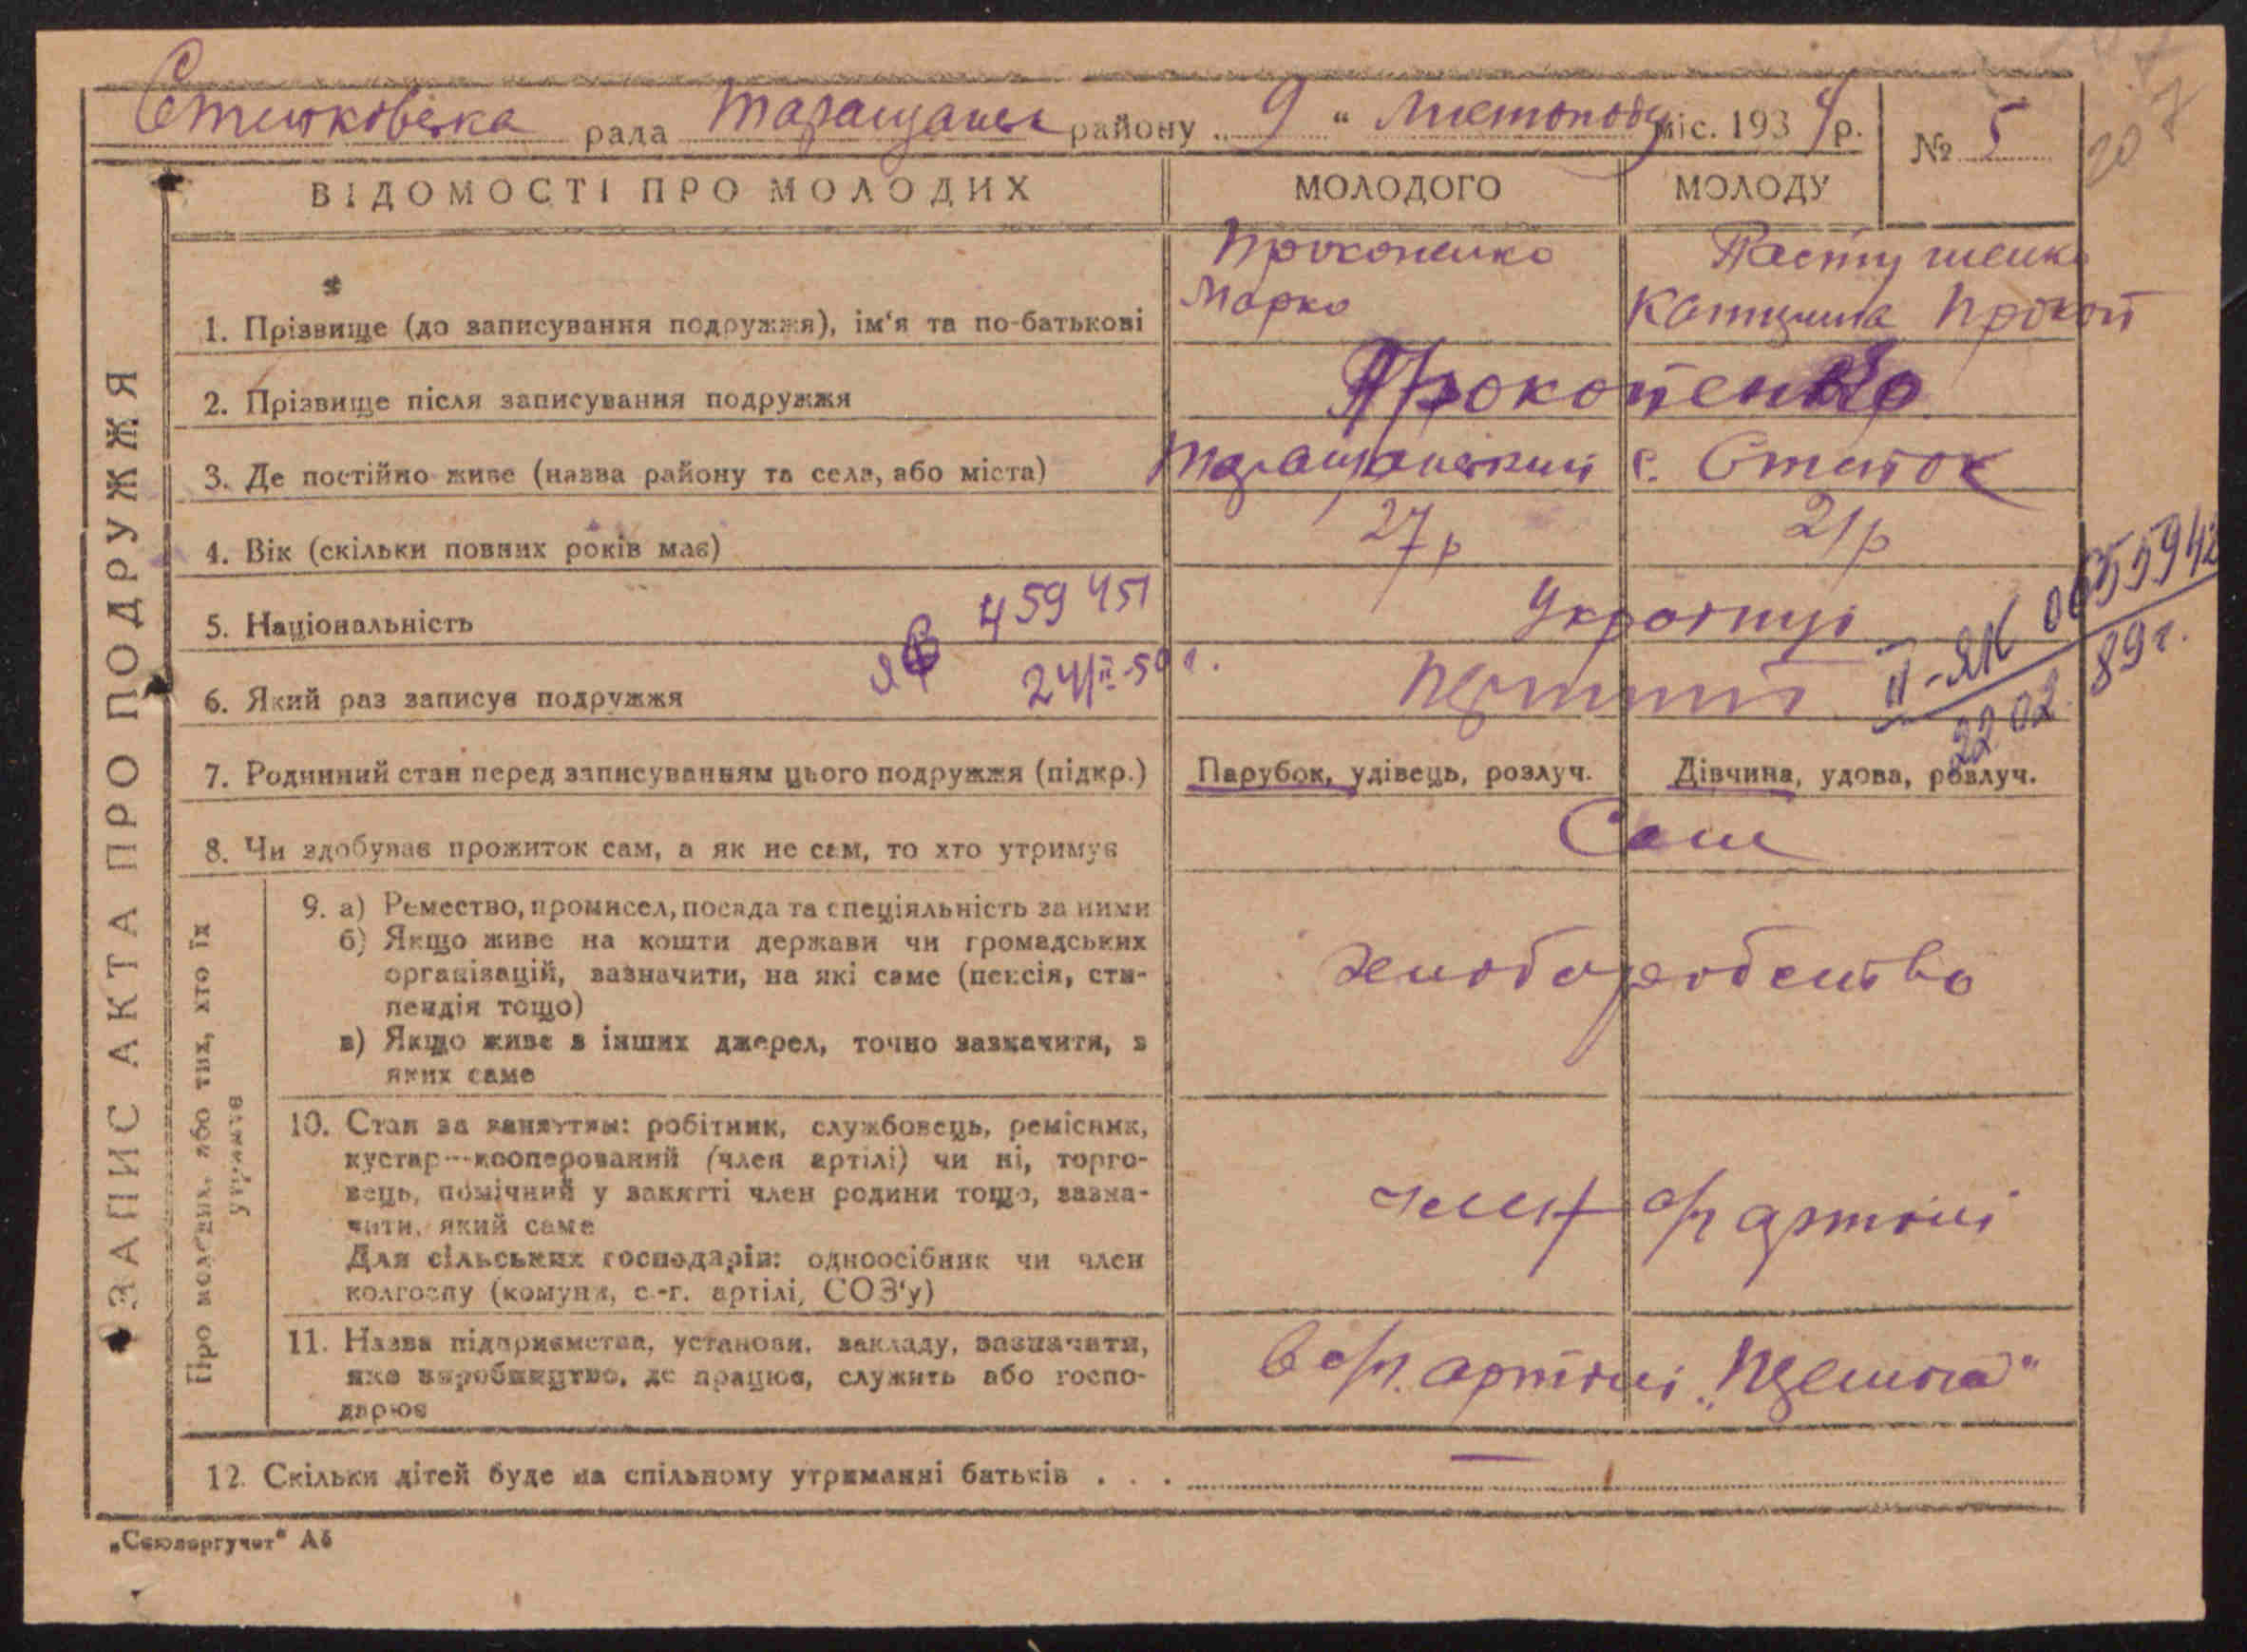 рада району „ 9 “ Листоподу міс. 1934р. № 5
20
7
ЗАПИС АКТА ПРО ПОДРУЖЖЯ
ВІДОМОСТІ ПРО МОЛОДИХ МОЛОДОГО МОЛОДУ
Прокопенко
Марко
Катерина Прокоп
1. Прізвище (до записування подружжя), ім‘я та по-батькові
2. Прізвище після записування подружжя Прокопенко
3. Де постійно живе (назва району та села, або міста) Таращанський с.
4. Вік (скільки повних років має) 27 р 21 р
5. Національність
459451
6. Який раз записує подружжя
24/II-50 г.
II-ЯК 0655942
22 02 89 г.
7. Родинний стан перед записуванням цього подружжя (підкр.) Парубок, удівець, розлуч. Дівчина, удова, розлуч.
8. Чи здобуває прожиток сам, а як не сам, то хто утримує Сами
Про молодих, або тих, хто їх утримує
9. а) Ремество, промисел, посада та спеціяльність за ними
б) Якщо живе на кошти держави чи громадських
організацій, зазначити, на які саме (пенсія, сти-
пендія тощо)
в) Якщо живе з інших джерел, точно зазначити, з
яких саме
10. Стан за заняттям: робітник, службовець, ремісник,
кустар—кооперований (член артілі) чи ні, торго-
вець, помічний у занятті член родини тощо, зазна-
чити, який саме
Для сільських господарів: одноосібник чи член
колгоспу (комуни, с.-г. артілі, СОЗ‘у)
член с/г артілі
11. Назва підприємства, установи, закладу, зазначити,
яке виробництво, де працює, служить або госпо-
дарює
в с/г. артілі
12. Скільки дітей буде на спільному утриманні батьків . . . —
„Союзоргучет“ А6